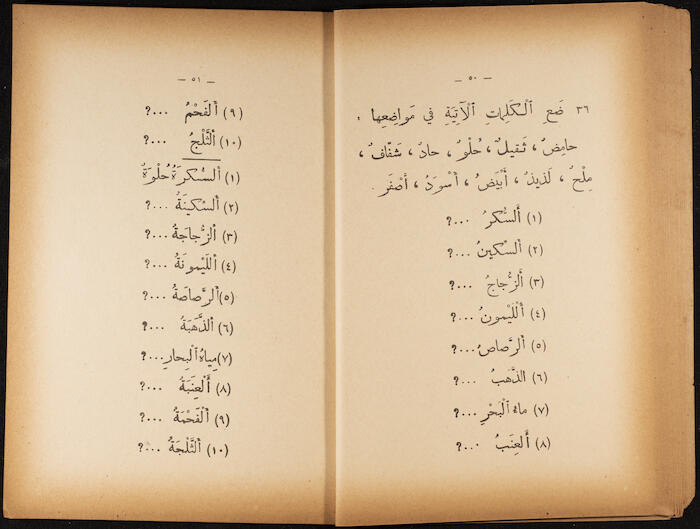 — ٥٠ —
٣٦ ضَعِ ٱلْكَلِمَاتِ ٱلْآتِيَةِ فِي مَوَاضِعِهَا :
حامِضٌ ، ثَقِيلٌ ، حُلْوٌ ، حادٌ ، شَفَّافٌ ،
مِلْحٌ ، لَذِيذٌ ، أَبْيَضُ ، أَسْوَدُ ، أَصْفَر .
(١) أَلسُّكَّرُ ...؟
(٢) أَلسِّكِّينُ ...؟
(٣) أَلزُّجاجُ ...؟
(٤) أَللَّيْمُونُ ...؟
(٥) أَلرَّصاصُ...؟
(٦) الذَّهَبُ ...؟
(٧) ماءُ ٱلْبَحْرِ ...؟
(٨) أَلْعِنَبُ ...؟
— ٥١ —
(٩) أَلْفَحْمُ ...؟
(١٠) أَلثَّلْجُ ...؟
(١) أَلسُّكَّرَةُ حُلْوَةٌ
(٢) أَلسِّكِّينَةُ ...؟
(٣) أَلزُّجاجَةُ ...؟
(٤) أَللَّيْمُونَةُ ...؟
(٥) أَلرَّصاصَةُ ...؟
(٦) أَلذَّهَبَةُ ...؟
(٧) مِياهُ ٱلْبِحارِ...؟
(٨) أَلْعِنَبَةُ ...؟
(٩) أَلْفَحْمَةُ ...؟
(١٠) أَلثَّلْجَةُ ...؟